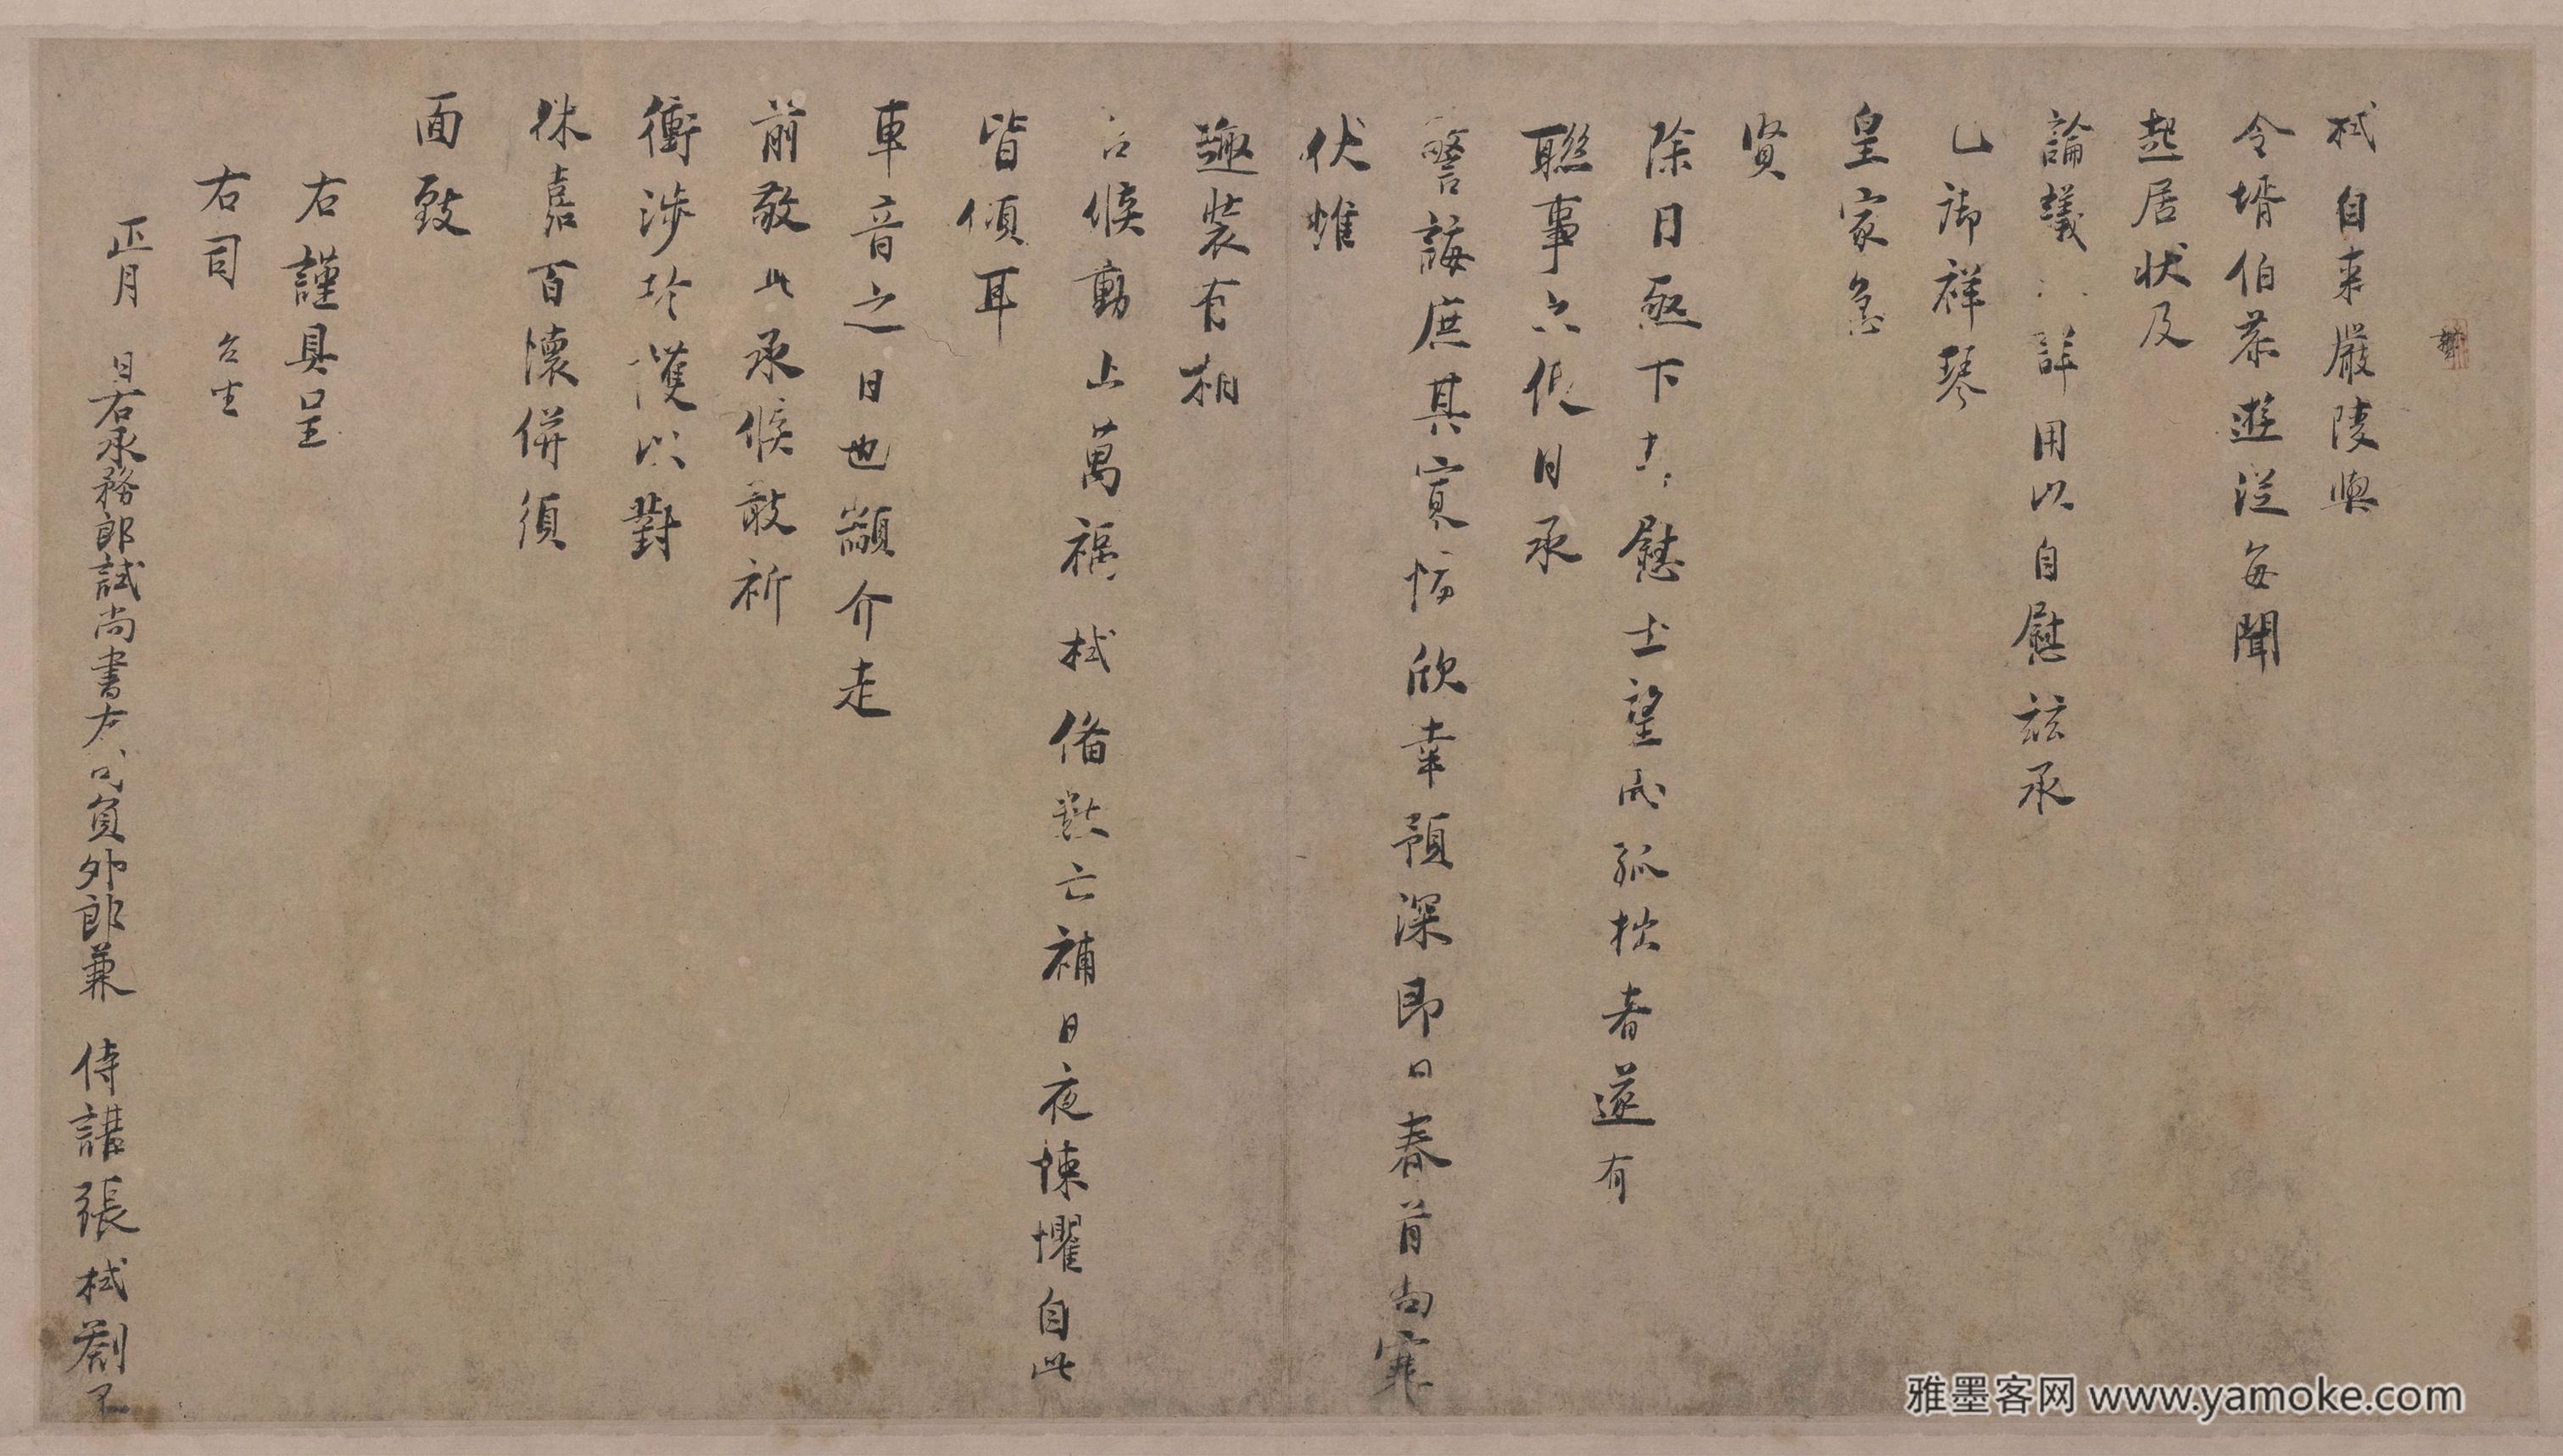 栻自来嚴陵與
令壻伯恭遊從每聞
起居狀及
論議詳用以自慰茲承
已御祥琴
皇家急
賢
除目亟下慰士望而孤拙者遂有
聯事六伏日承
警誨庶其寡悔欣幸預深即日春首尚寒
伏惟
趣裝有相
台候動止萬福栻備數亡補日夜悚懼自此
皆傾耳
車音之日也顓介走
前敬此承候敢祈
衝涉珍護以對
休嘉百懷併須
面致
右謹具呈
右司台坐
正月 日右承務郎試尚書左司員外郎兼 侍講張栻劄子
雅墨客网 www.yamoke.com